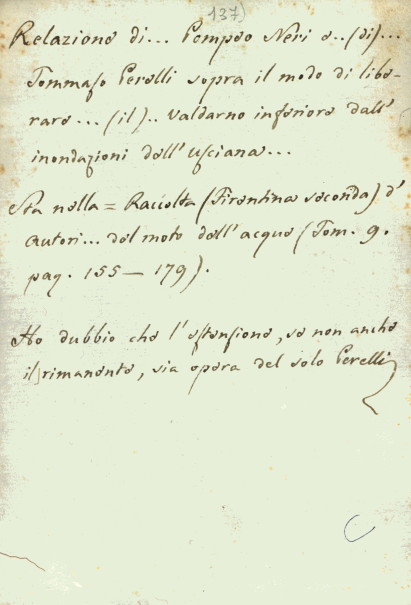 137)
Relazione di... Pompeo Neri e..(di)...
Tommaso Perelli sopra il modo di libe-
rare...(il).. Valdarno inferiore dall'
inondazioni dell'Usciana...
Sta nella = Raccolta (Fiorentina seconda) d'
Autori... del moto dell'acque (Tom. 9.
pag. 155 — 179).
Ho dubbio che l'estensione, se non anche
il rimanente, sia opera del solo Perelli